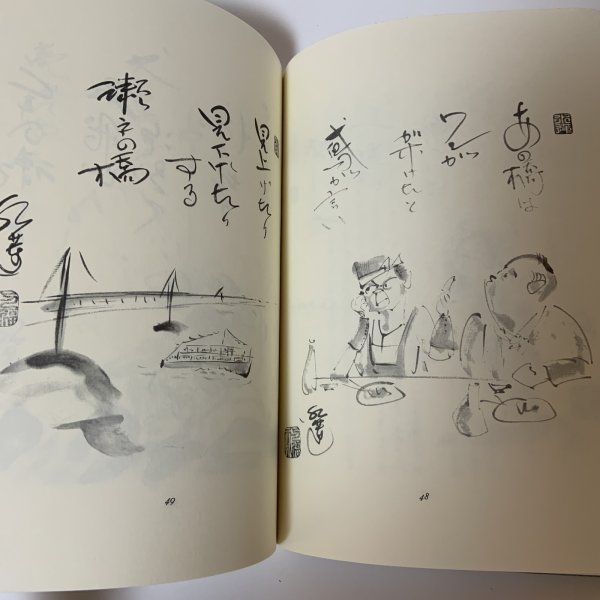 あの橋は
ワシが
架けたと
鳶が云い
48
見上げたり
見下げたり
する
瀬戸の橋
49